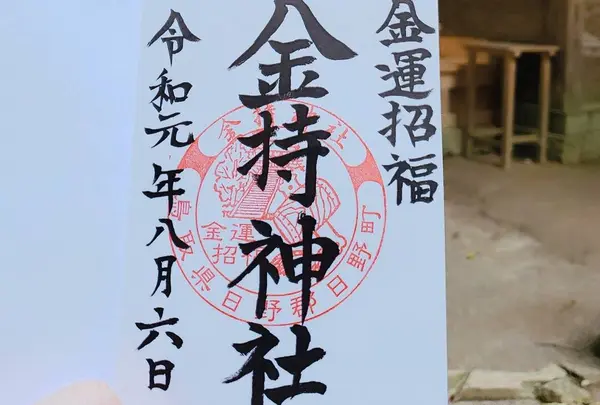 金運招福
金持神社
令和元年八月六日
金運
招福
鳥取県日野郡日野町